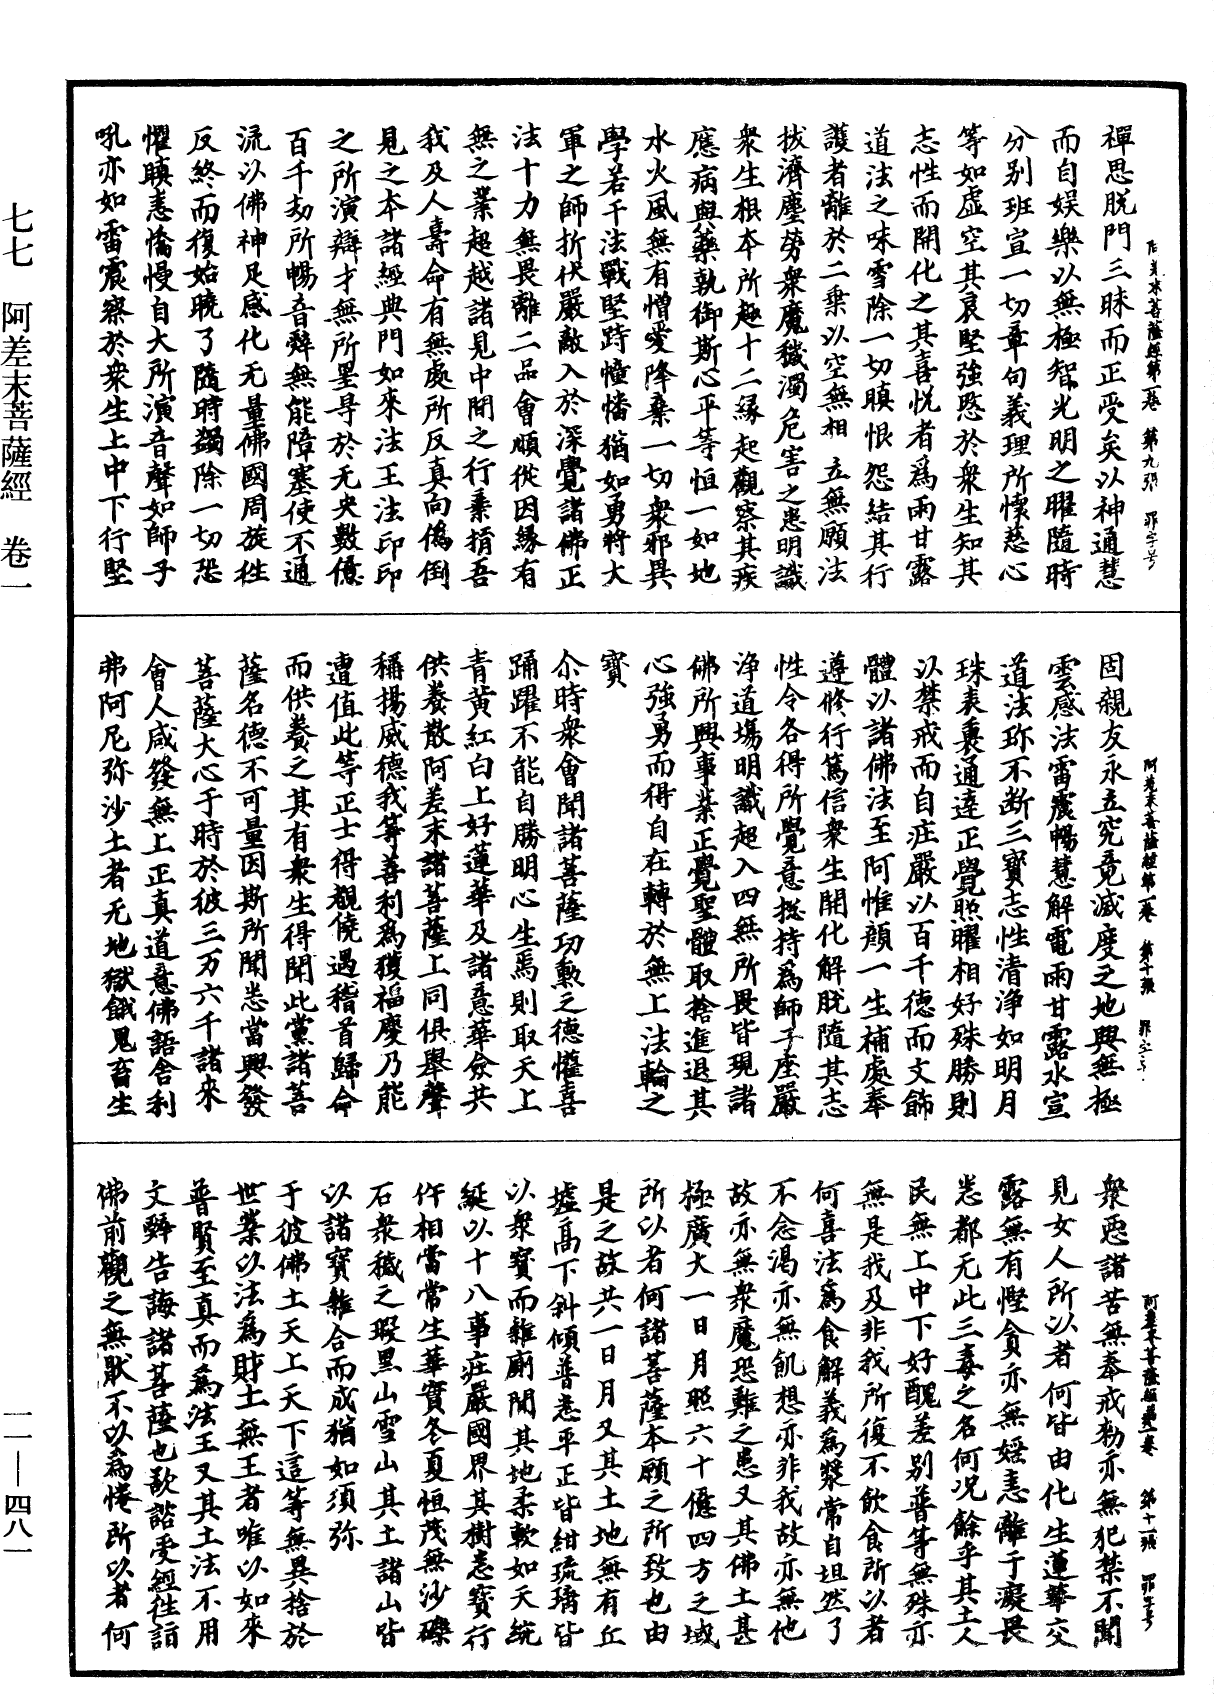 七七　阿差末菩薩經　卷一
一一—四八一
阿差末菩薩經第一卷　第九張　罪字号
禪思脱門三昧而正受矣以神通慧
而自娛樂以無極智光明之曜隨時
分别班宣一切章句義理所懷慈心
等如虛空其哀堅強愍於衆生知其
志性而開化之其喜悦者爲雨甘露
道法之味雪除一切瞋恨怨結其行
護者離於二乗以空無相立無願法
拔濟塵勞衆魔穢濁危害之患明識
衆生根本所趣十二縁起觀察其疾
應病與藥執御斯心平等恒一如地
水火風無有憎愛降棄一切衆邪異
學若干法戰堅跱憧幡猶如勇將大
軍之師折伏嚴敵入於深覺諸佛正
法十力無畏離二品會順從因縁有
無之業超越諸見中閒之行棄捐吾
我及人壽命有無處所反真向僞倒
見之本諸經典門如來法王法印印
之所演辯才無所罣㝵於无央數億
百千劫所暢音辝無能障塞使不通
流以佛神足感化无量佛國周旋往
反終而復始曉了隨時蠲除一切恐
懼瞋恚憍慢自大所演音聲如師子
吼亦如雷震察於衆生上中下行堅
阿差末菩薩經第一卷　第十張　罪字号
固親友永立究竟滅度之地興無極
雲感法雷震暢慧解電雨甘露水宣
道法珎不断三寶志性清淨如明月
珠表裏通達正覺照曜相好殊勝則
以禁戒而自庄嚴以百千德而文飾
體以諸佛法至阿惟顔一生補處奉
遵修行篤信衆生開化解脱隨其志
性令各得所覺意揔持爲師子座嚴
淨道場明識超入四無所畏皆現諸
佛所興事業正覺聖體取捨進退其
心強勇而得自在轉於無上法輪之
寶
尒時衆會聞諸菩薩功勲之德懽喜
踊躍不能自勝明心生焉則取天上
青黄紅白上好蓮華及諸意華衆共
供養散阿差末諸菩薩上同俱舉聲
稱揚威德我等善利爲獲福慶乃能
遭值此等正士得覩僥遇稽首歸命
而供養之其有衆生得聞此黨諸菩
薩名德不可量因斯所聞悉當興發
菩薩大心于時於彼三万六千諸來
會人咸發無上正真道意佛語舎利
弗阿尼弥沙土者无地獄餓鬼畜生
阿差末菩薩經第一卷　第十一張　罪字号
衆惡諸苦無奉戒勑亦無犯禁不聞
見女人所以者何皆由化生蓮華交
露無有慳貪亦無婬恚離于癡畏
悉都无此三毒之名何况餘乎其土人
民無上中下好醜差别普等無殊亦
無是我及非我所復不飲食所以者
何喜法爲食解義爲漿常自坦然了
不念渴亦無飢想亦非我故亦無他
故亦無衆魔恐難之患又其佛土甚
極廣大一日月照六十億四方之域
所以者何諸菩薩本願之所致也由
是之故共一日月又其土地無有丘
墟高下斜傾普悉平正皆紺琉璃皆
以衆寶而雜廁閒其地柔軟如天綩
綖以十八事庄嚴國界其樹悉寶行
仵相當常生華實冬夏恒茂無沙礫
石衆穢之瑕黒山雪山其土諸山皆
以諸寶雜合而成猶如須弥
于彼佛土天上天下這等無異捨於
世業以法爲財土無王者唯以如來
普賢至真而爲法王又其土法不用
文辝告誨諸菩薩也㰤諮受經往詣
佛前觀之無猒不以爲惓所以者何